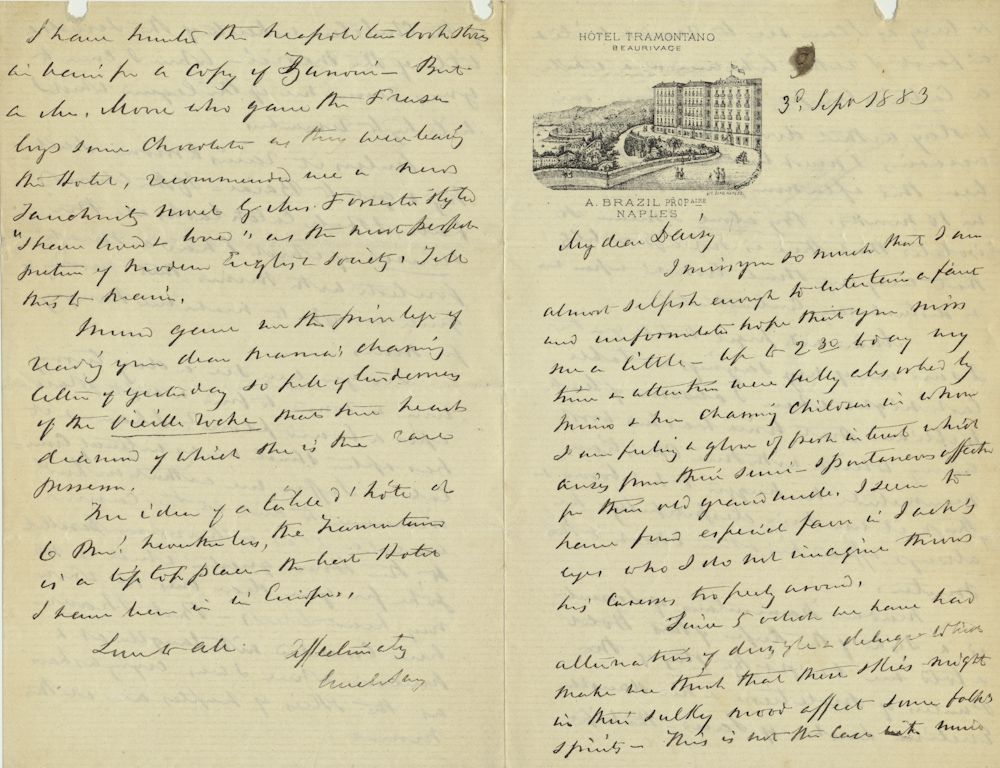 HÔTEL TRAMONTANO
BEAURIVAGE
3d. Sept 1883
A. BRAZIL PROP.AIRE
NAPLES
My dear Daisy
I miss you so much that I am
almost selfish enough to entertain a faint
and unformulated hope that you miss
me a little – Up to 2 30 today my
time & attention were fully absorbed by
Mimo & her charming children in whom
I am feeling a glow of fresh interest which
arises from their semi-spontaneous affection
for their old granduncle. I seem to
have found especial favor in Jack's
eyes who I do not imagine throws
his caresses broadly around.
Since 5 o'clock we have had
alternations of drizzle & deluge which
make me think that these skies might
in their sulky mood affect some folks
spirits – This is not the case with mine
I have hunted the neapolitan book stores
in vain for a copy of Zanoni – But
a Mrs. Moore who gave the Fraser
boys some Chocolate as they were leaving
the Hotel, recommended me a new
Tauchnitz novel by Mrs. Forrester styled
"I have lived & loved" as the most perfect
picture of modern English Society. Tell
this to
Mimo gave me the privilege of
reading your dear Mama's charming
letter of yesterday so full of tenderness
of the Vieille roche that true hearts
diamond of which she is the rare
possessor.
The idea of a table d'hôte at
6 P.M.! Nevertheless, the Tramontano
is a tip top place – the best Hotel
I have been in in Europe.
Love to all. Affectionately
Uncle Sam